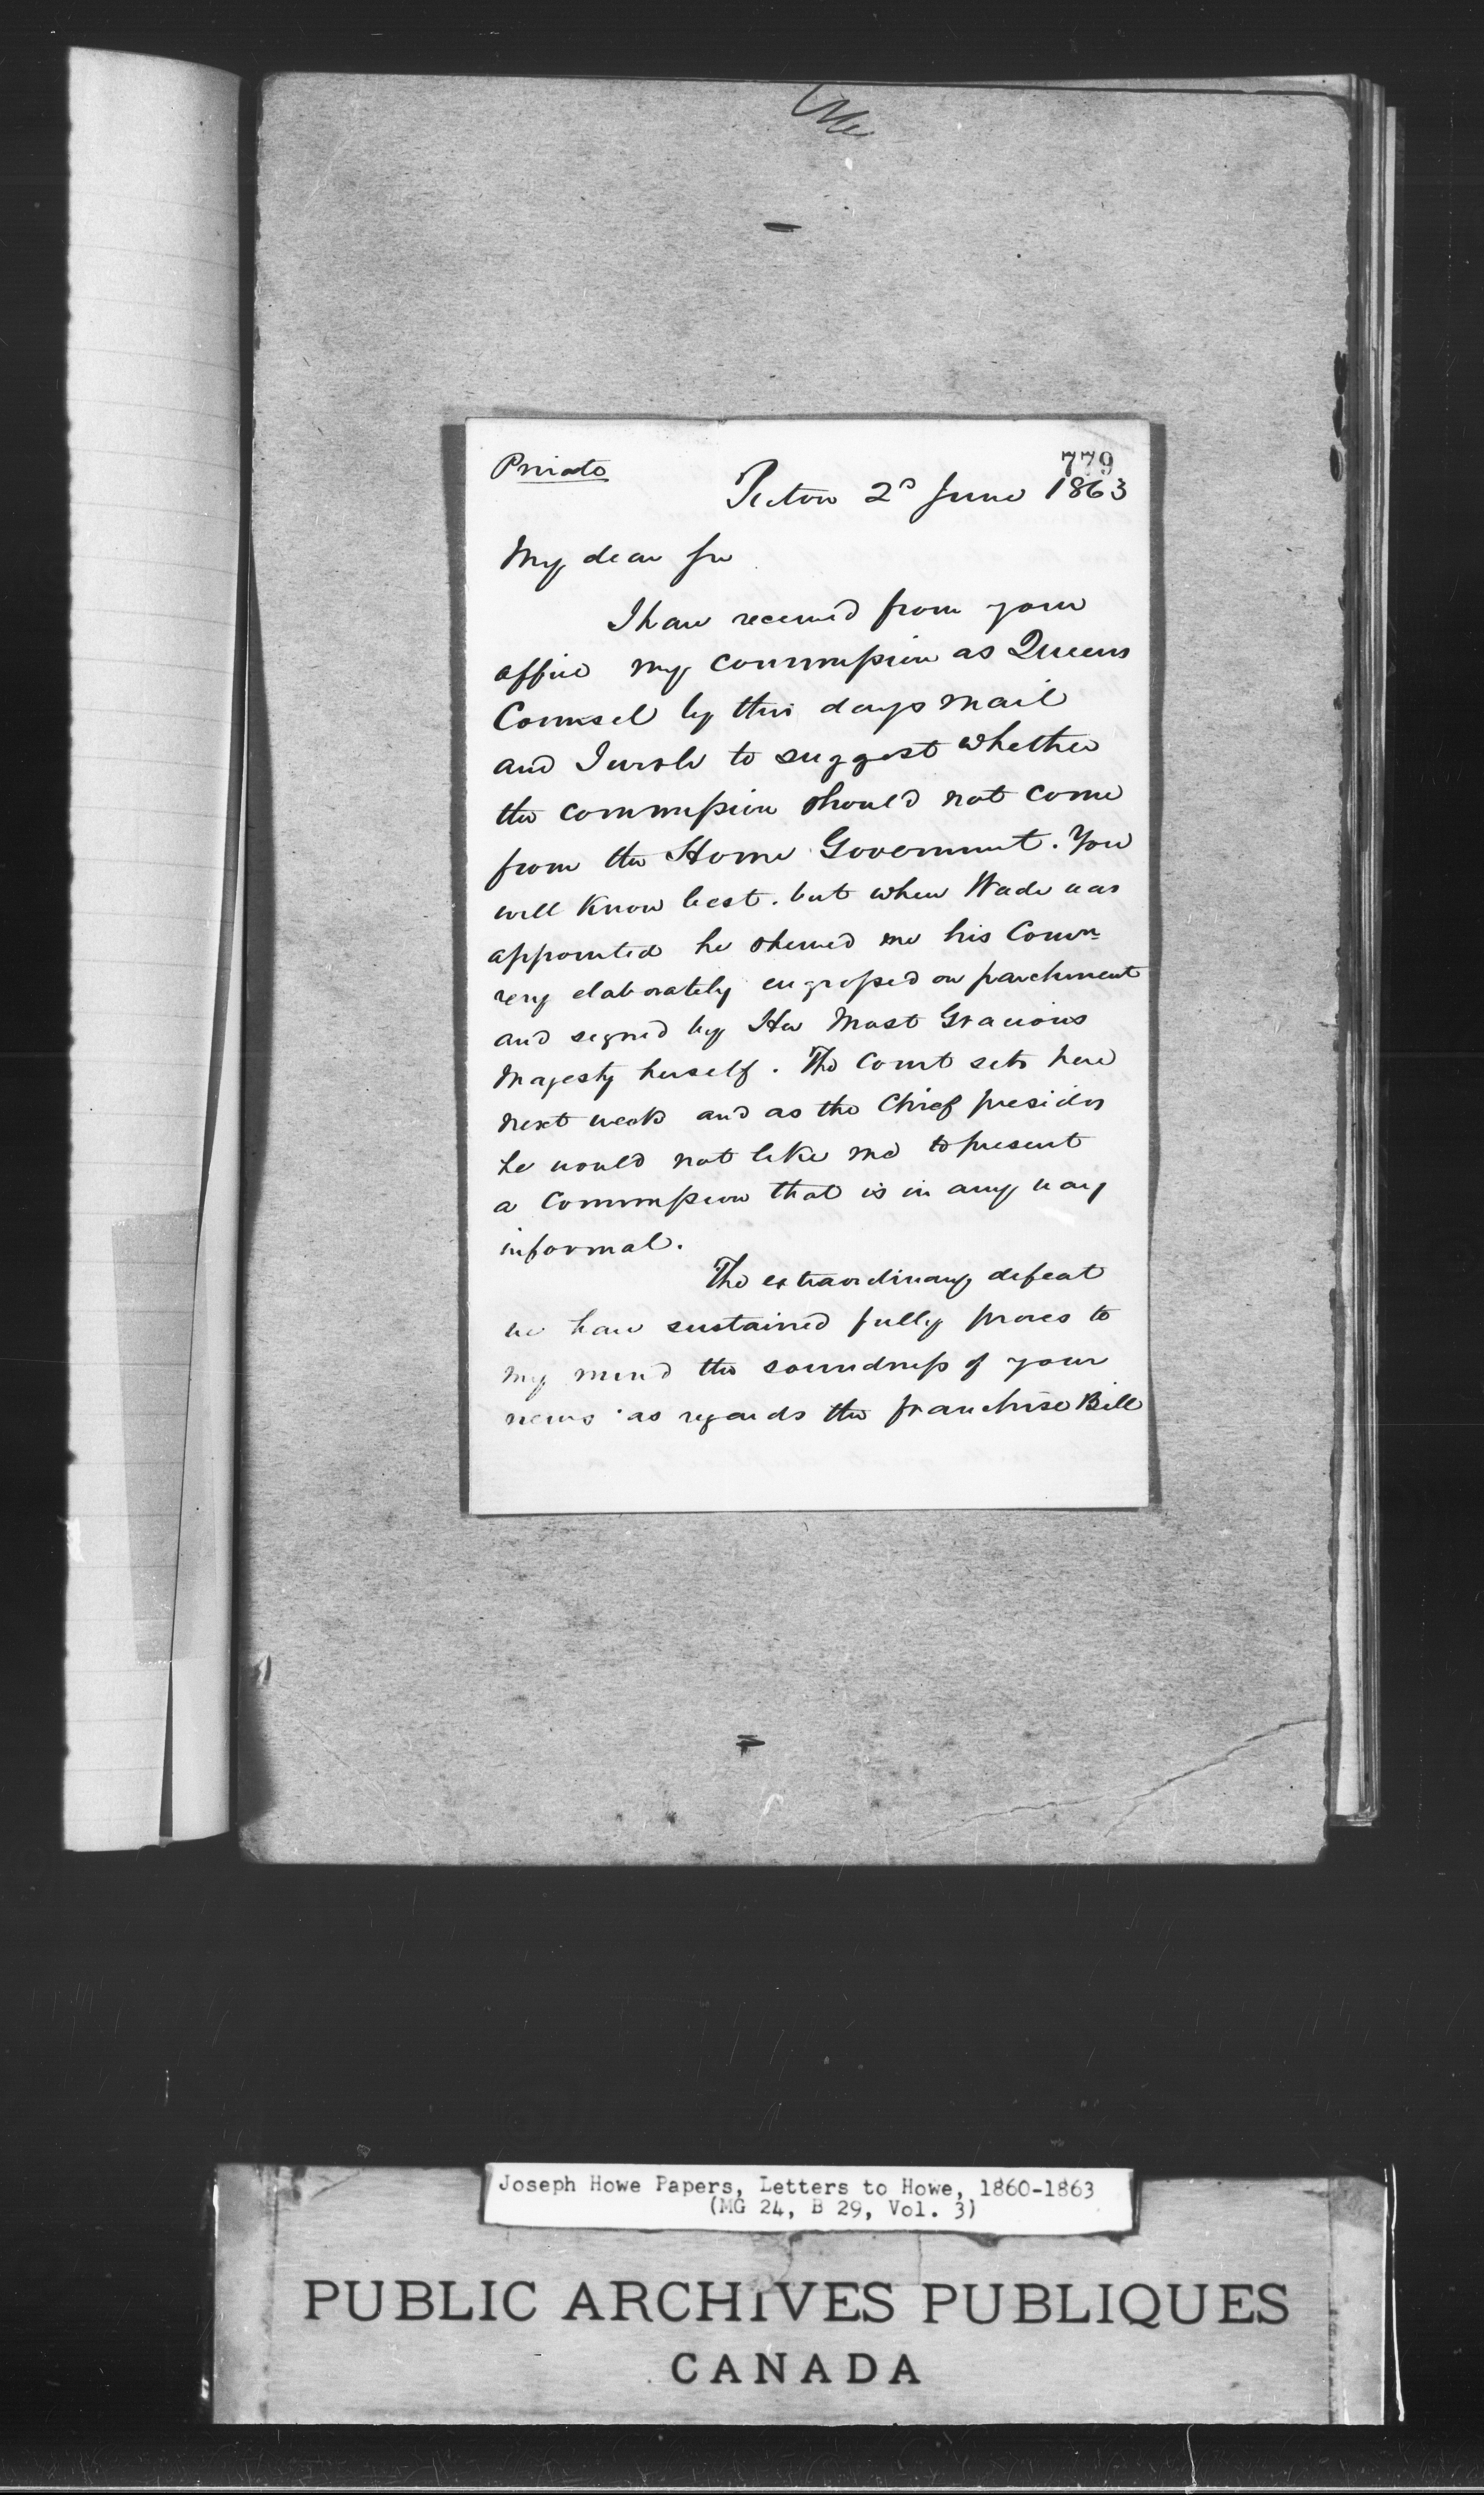 Private
779
Pictou 2d June 1863
My dear Sir
I have received from your
office my commission as Queens
Counsel by this days mail
and I write to suggest whether
the commission should not come
from the Home Government. You
will know best. but when Wade was
appointed he shewed me his Comn
very elaborately engrossed on parchment
and signed by Her Most Gracious
Majesty herself. The Court sets here
next week and as the Chief presides
he would not like me to present
a Commission that is in any way
informal.
The extraordinary defeat
we have sustained fully proves to
my mind the soundness of your
views as regards the franchise Bill
Joseph Howe Papers, Letters to Howe, 1860-1863
(MG 24, B 29, Vol. 3)
PUBLIC ARCHIVES PUBLIQUES
CANADA